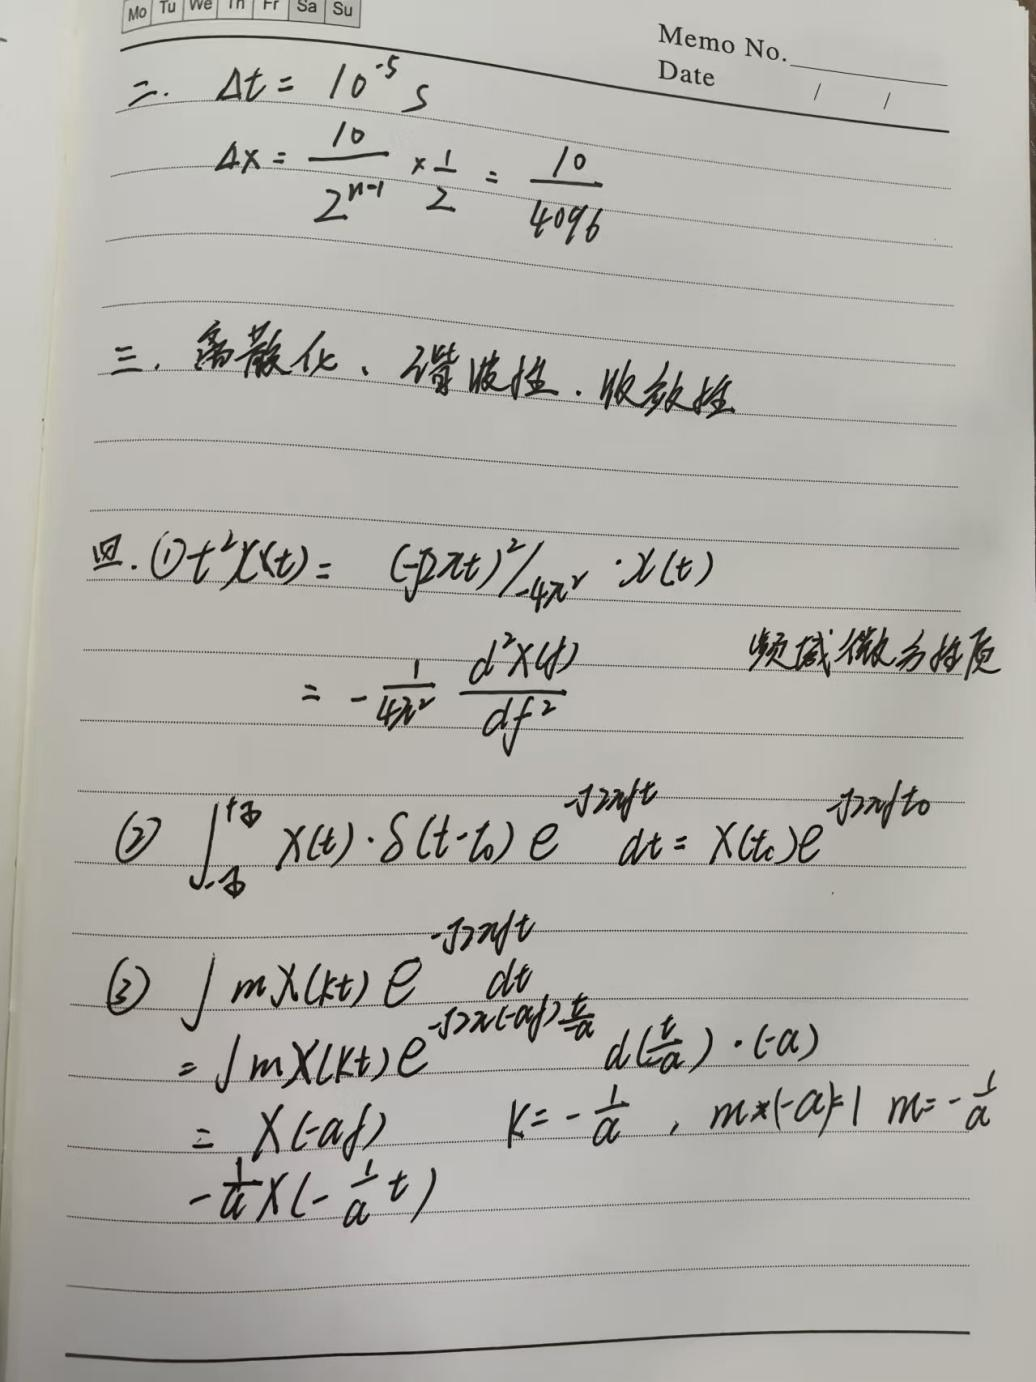 Mo Tu We Th Fr Sa Su
Memo No.
Date / /
二. Δt = 10^-5 s
Δx = 10/2^(n-1) × 1/2 = 10/4096
三. 离散化、谐波性、收敛性
四. ① t²x(t) = (-j2πt)²/-4π² · x(t)
= - 1/4π² d²X(f)/df² 频域微分性质
② ∫_{-∞}^{+∞} x(t)·δ(t-t₀) e^{-j2πft} dt = x(t₀)e^{-j2πft₀}
③ ∫ m x(kt) e^{-j2πft} dt
= ∫ m x(kt) e^{-j2π(-af) t/-a} d(t/-a)·(-a)
= X(-af) k = - 1/a , m×(-a)=1 m = - 1/a
- 1/a x(- 1/a t)